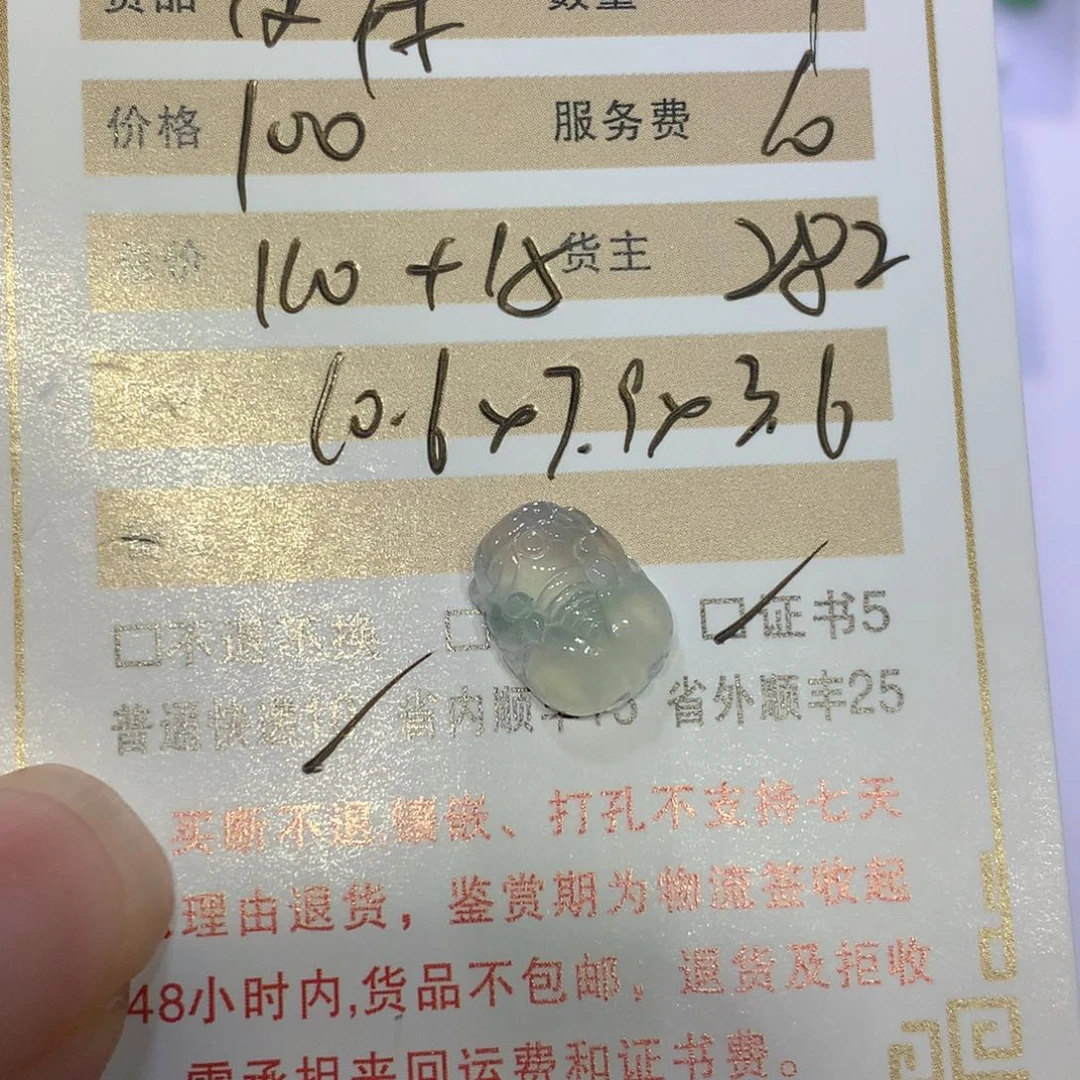 货品 数量 1
价格 100 服务费 10
总价 110+18 货主 282
10.6×7.9×3.6
□不退不换 □ □证书5
普通快递10 省内顺丰15 省外顺丰25
买断不退,镶嵌、打孔不支持七天
理由退货，鉴赏期为物流签收起
48小时内,货品不包邮。退货及拒收
需承担来回运费和证书费。